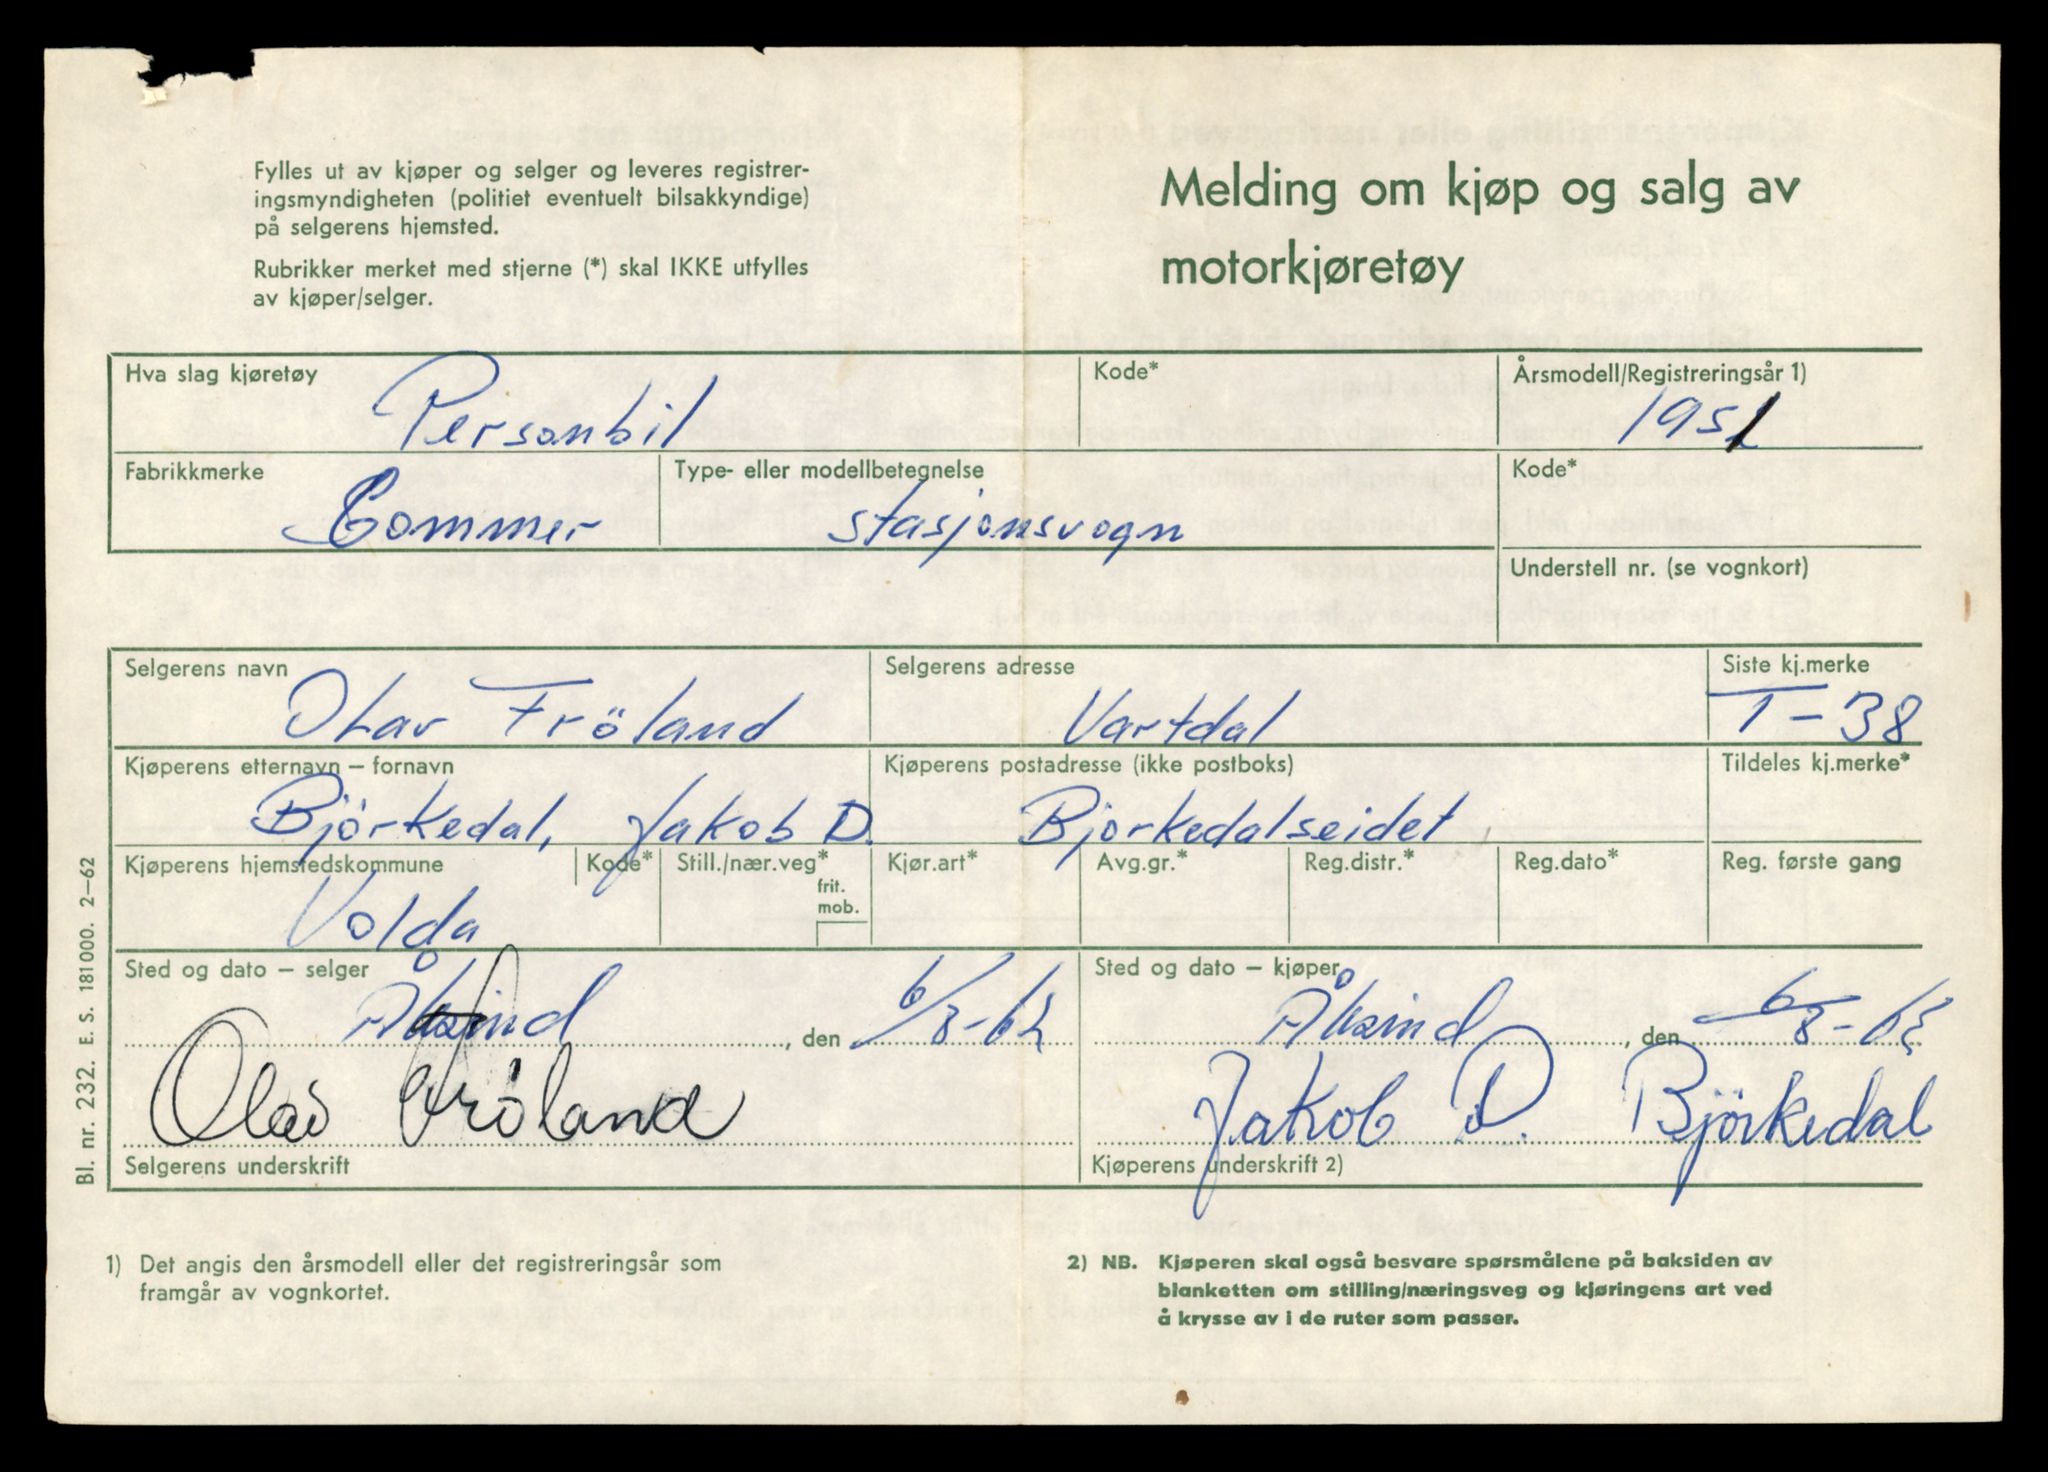 Fylles ut av kjøper og selger og leveres registrer-
ingsmyndigheten (politiet eventuelt bilsakkyndige)
på selgerens hjemsted.
Rubrikker merket med stjerne (*) skal IKKE utfylles
av kjøper/selger.
Melding om kjøp og salg av
motorkjøretøy
Hva slag kjøretøy Kode* Årsmodell/Registreringsår 1)
Personbil 1951
Fabrikkmerke Type- eller modellbetegnelse Kode*
Commer stasjonsvogn
Understell nr. (se vognkort)
Selgerens navn Selgerens adresse Siste kj.merke
Olav Fröland Vartdal T-38
Kjøperens etternavn – fornavn Kjøperens postadresse (ikke postboks) Tildeles kj.merke*
Björkedal, Jakob D. Bjorkedalseidet
Kjøperens hjemstedskommune Kode* Still./nær.veg* Kjør.art* Avg.gr.* Reg.distr.* Reg.dato* Reg. første gang
frit.
mob.
Volda
Sted og dato – selger Sted og dato – kjøper
Ålesund, den 6/8-62 Ålesund, den 6/8-62
Olav Fröland Jakob D. Björkedal
Selgerens underskrift Kjøperens underskrift 2)
Bl. nr. 232. E. S. 181000. 2–62
1) Det angis den årsmodell eller det registreringsår som
framgår av vognkortet.
2) NB. Kjøperen skal også besvare spørsmålene på baksiden av
blanketten om stilling/næringsveg og kjøringens art ved
å krysse av i de ruter som passer.